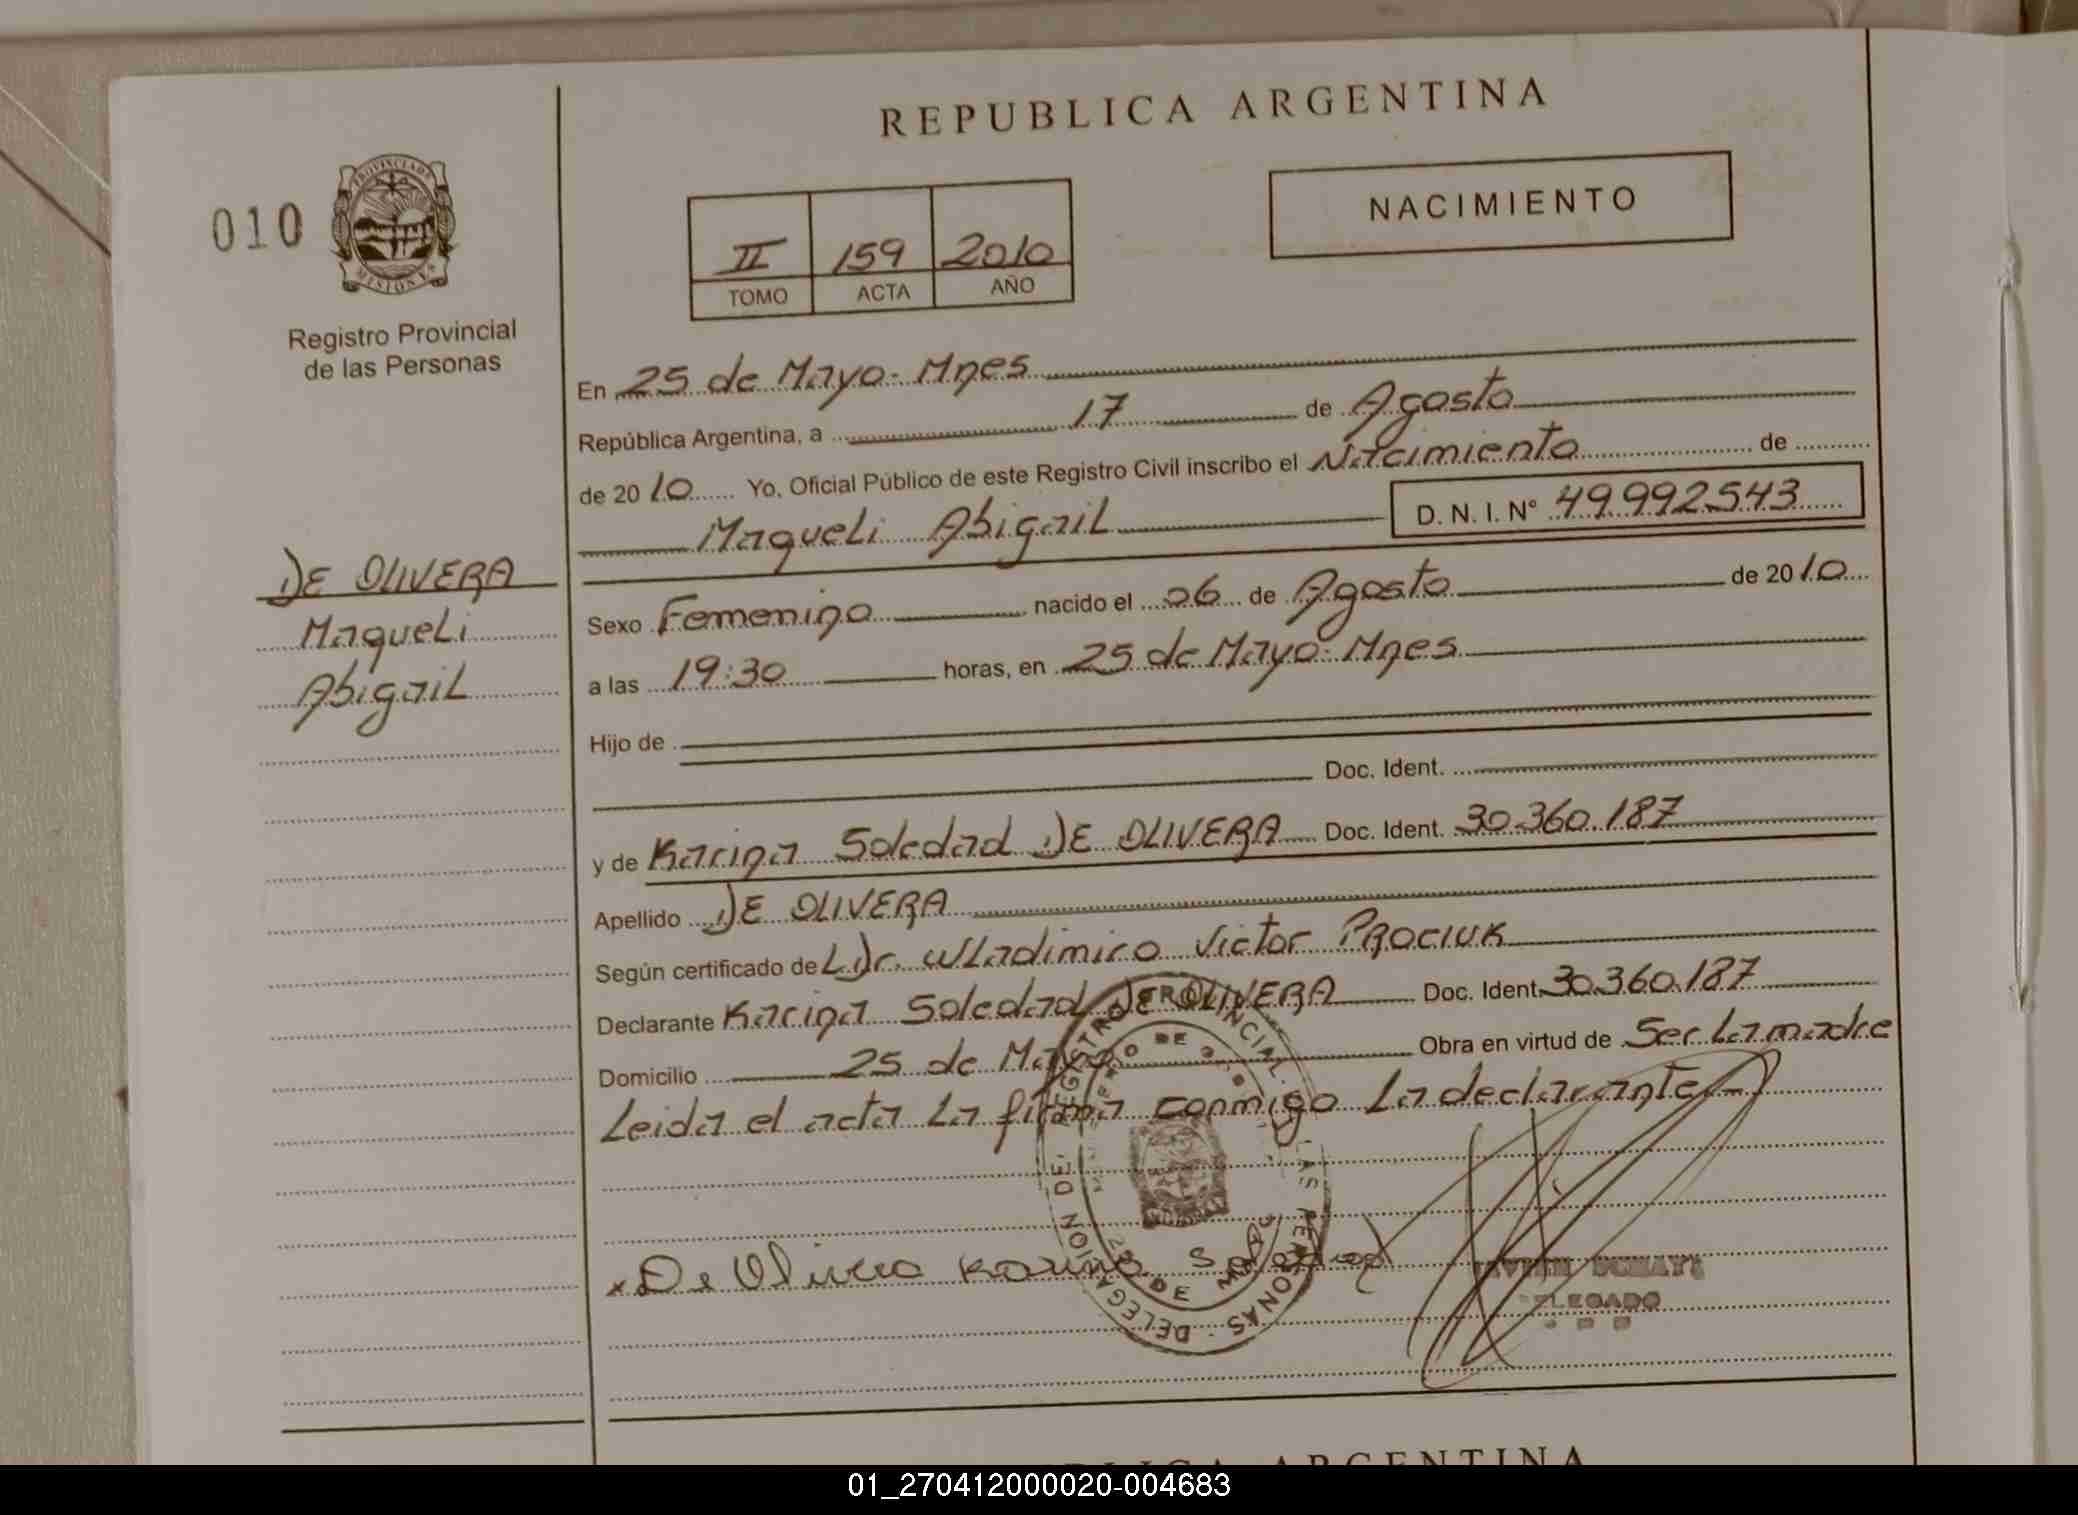 REPUBLICA ARGENTINA
010
PROVINCIA DE
MISIONES
Registro Provincial
de las Personas
NACIMIENTO
II 159 2010
TOMO ACTA AÑO
DE OLIVERA
Maqueli
Abigail
En 25 de Mayo - Mnes
República Argentina, a 17 de Agosto
de 2010 Yo, Oficial Público de este Registro Civil inscribo el Nacimiento de
Maqueli Abigail D. N. I. Nº 49.992543
Sexo Femenino nacido el 06 de Agosto de 2010
a las 19:30 horas, en 25 de Mayo - Mnes
Hijo de
Doc. Ident.
y de Karina Soledad DE OLIVERA Doc. Ident. 30.360.187
Apellido DE OLIVERA
Según certificado de L Dr. Wladimiro Victor PROCIUK
Declarante Karina Soledad DE OLIVERA Doc. Ident. 30.360.187
Domicilio 25 de Mayo Obra en virtud de Ser La madre
Leida el acta La firma conmigo La declarante -
REGISTRO PROVINCIAL DE LAS PERSONAS - DELEGACION DE
25 DE MAYO
x De Olivera Karina Soledad
DELEGADO
REPUBLICA ARGENTINA
01_270412000020-004683